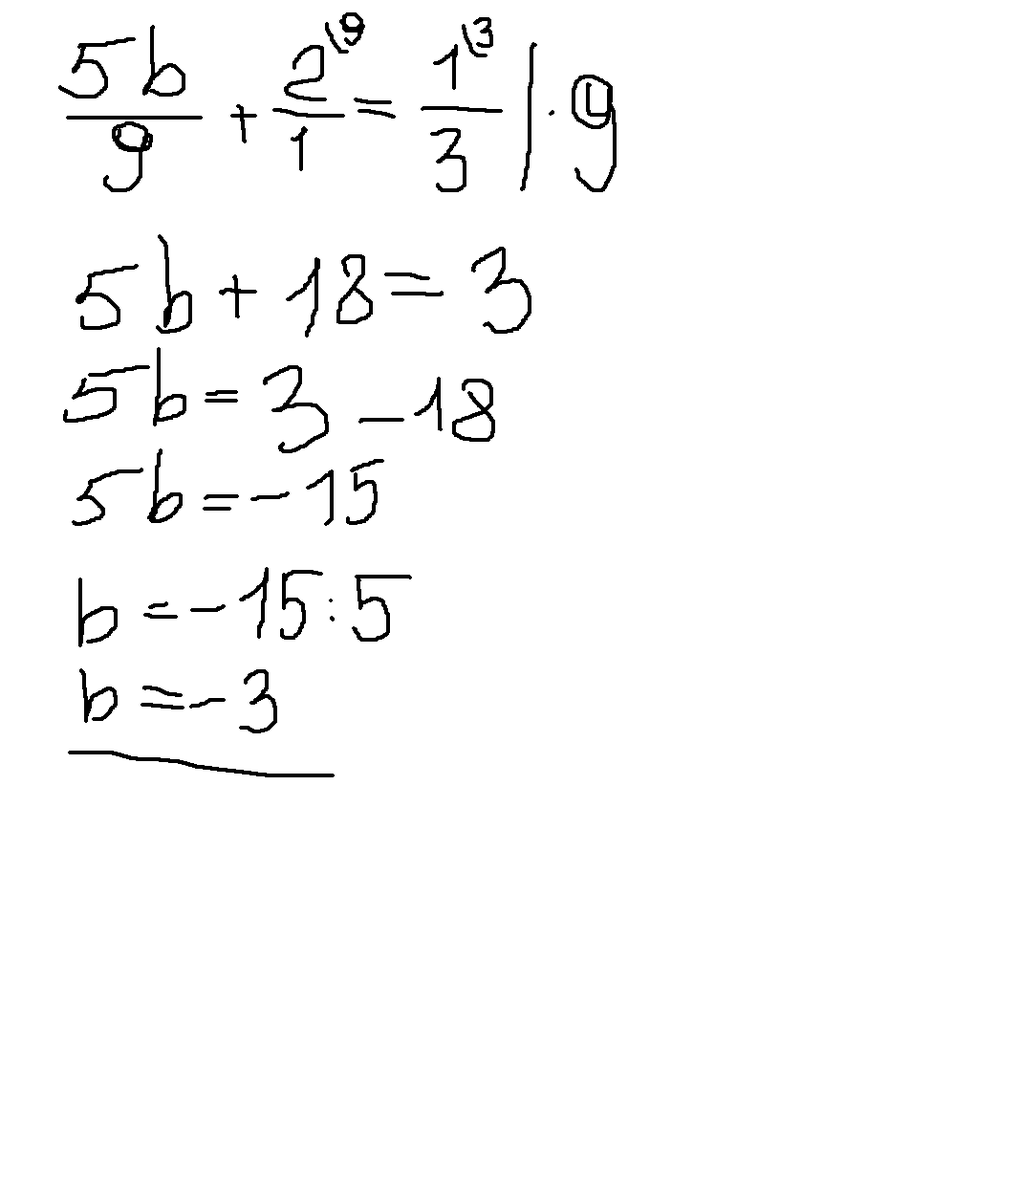 5b/9 + 2\9/1 = 1\3/3 | · 9
5b + 18 = 3
5b = 3 - 18
5b = - 15
b = - 15 : 5
b = - 3